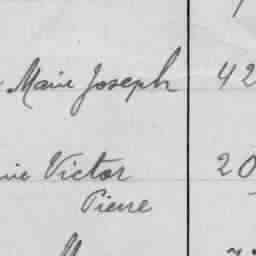 Marie Joseph 42
Victor 20
Pierre